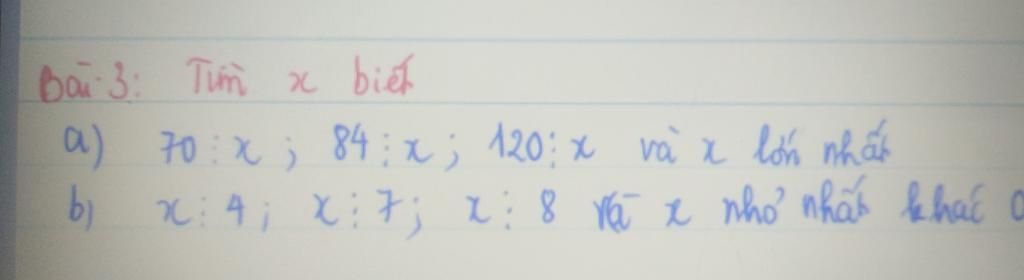 Bài 3: Tìm x biết
a) 70 ⋮ x ; 84 ⋮ x ; 120 ⋮ x và x lớn nhất
b) x ⋮ 4 ; x ⋮ 7 ; x ⋮ 8 và x nhỏ nhất khác 0